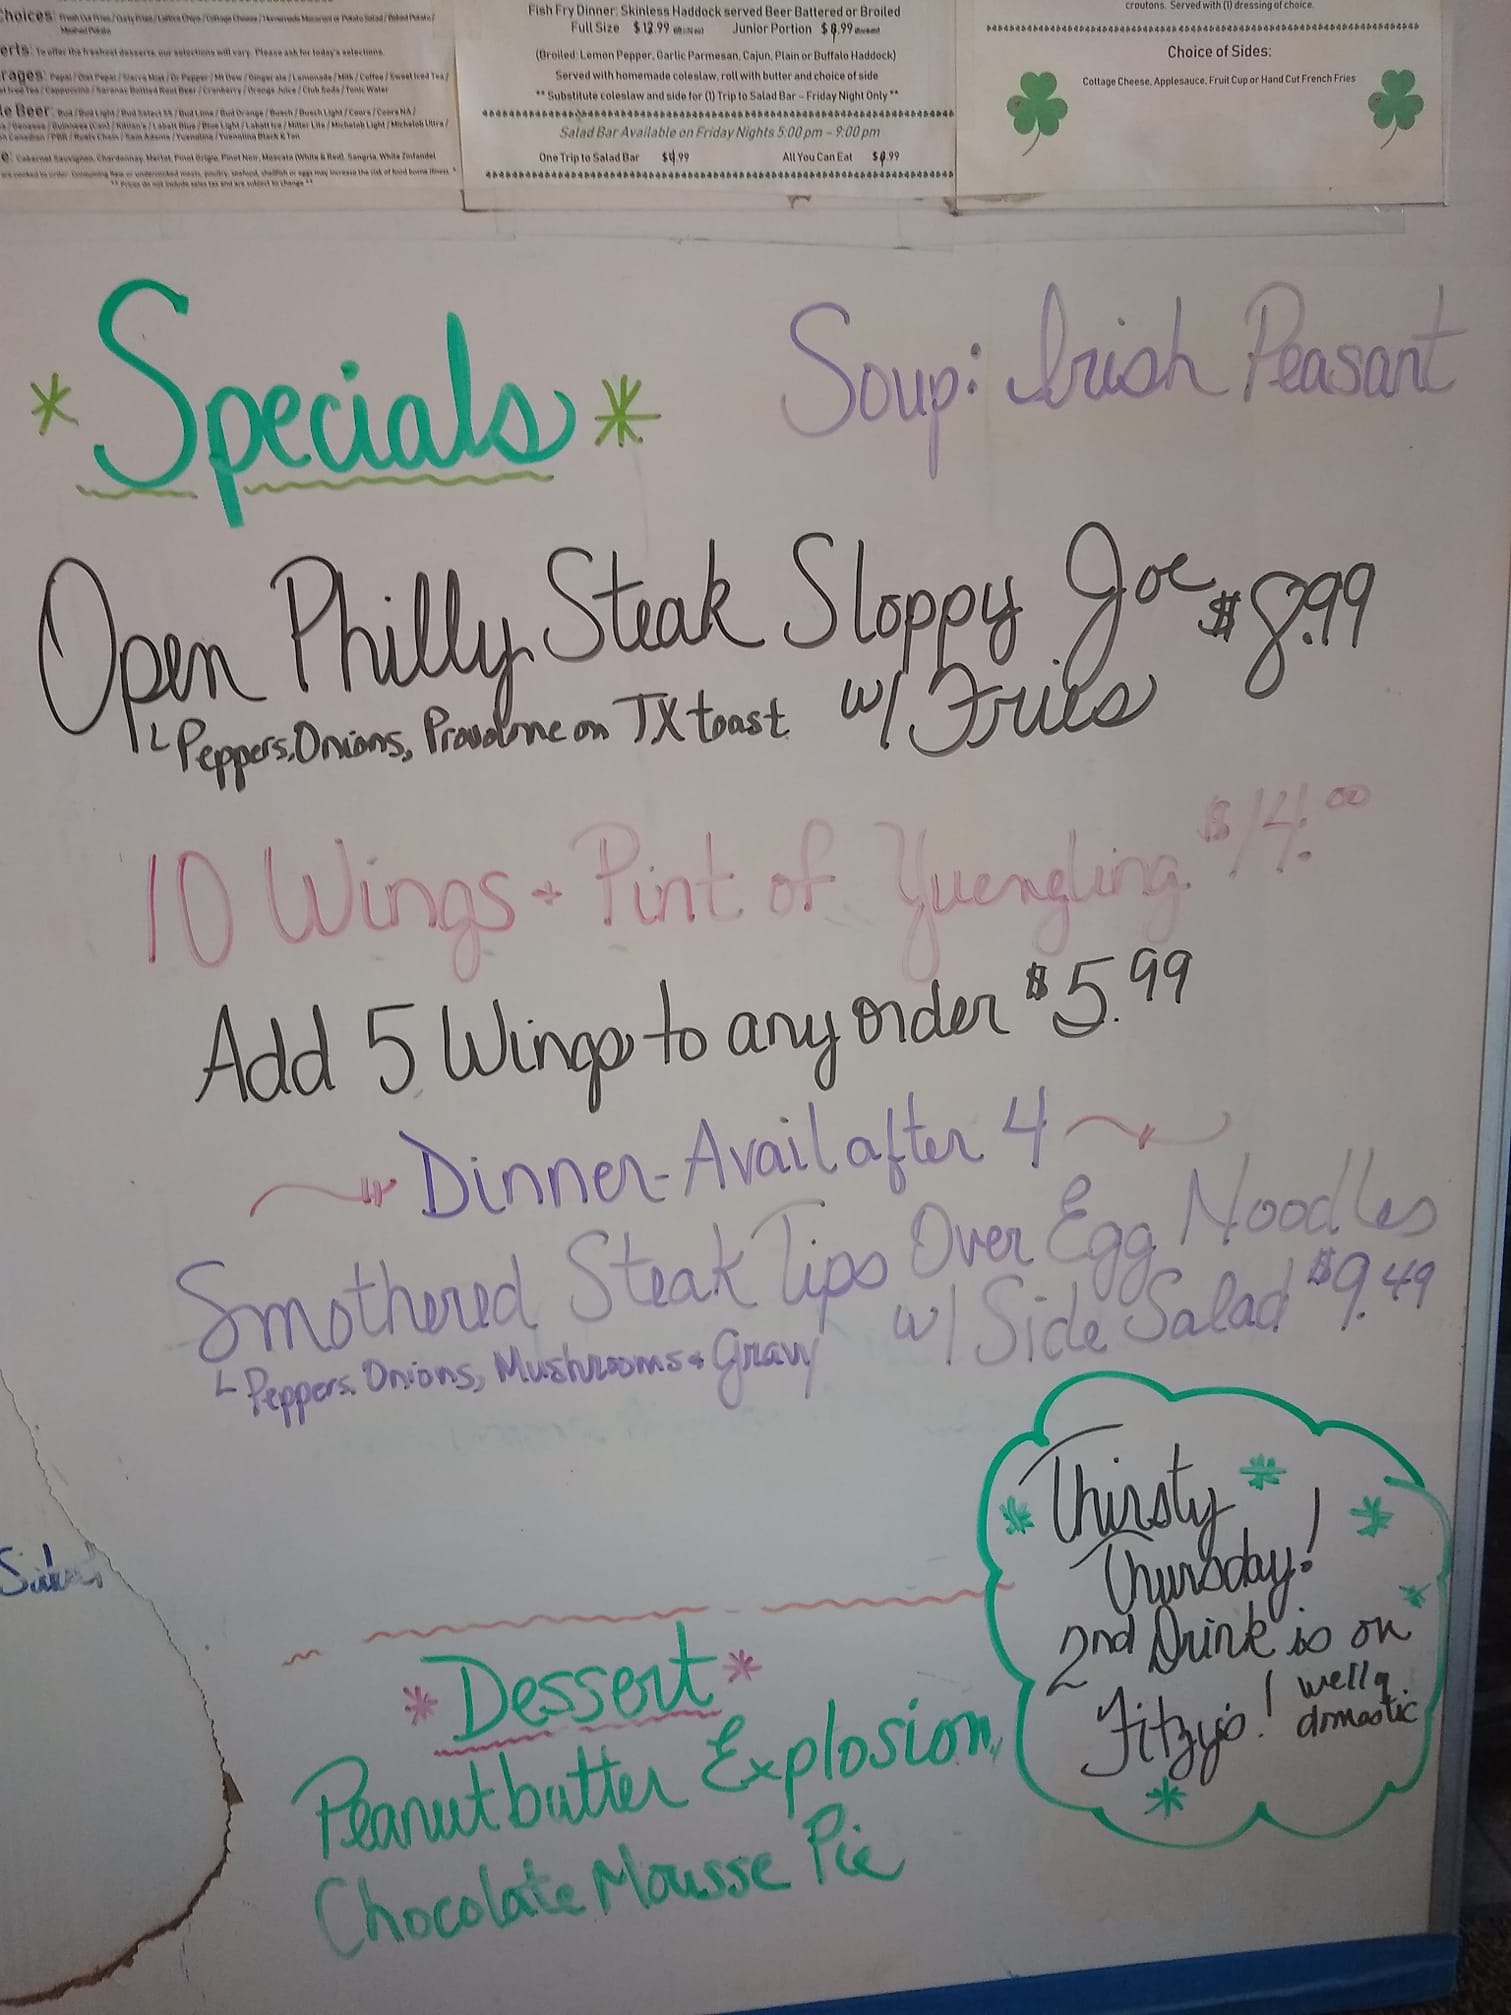 Choices: Fresh Cut Fries / Curly Fries / Lattice Chips / Cottage Cheese / Homemade Macaroni or Potato Salad / Baked Potato /
Mashed Potato
erts: To offer the freshest desserts, our selections will vary. Please ask for today's selections.
rages: Pepsi / Diet Pepsi / Sierra Mist / Dr Pepper / Mt Dew / Gingerale / Lemonade / Milk / Coffee / Sweet Iced Tea /
Iced Tea / Cappuccino / Saranac Bottled Root Beer / Cranberry / Orange Juice / Club Soda / Tonic Water
le Beer: Bud / Bud Light / Bud Select 55 / Bud Lime / Bud Orange / Busch / Busch Light / Coors / Coors NA /
Genesee / Guinness (Can) / Killian's / Labatt Blue / Blue Light / Labatt Ice / Miller Lite / Michelob Light / Michelob Ultra /
Canadian / PBR / Sam Adams / Yuengling / Yuengling Black & Tan
e: Cabernet Sauvignon, Chardonnay, Merlot, Pinot Grigio, Pinot Noir, Moscato (White & Red), Sangria, White Zinfandel
are cooked to order. Consuming raw or undercooked meats, poultry, seafood, shellfish or eggs may increase the risk of food borne illness. *
** Prices do not include sales tax and are subject to change **
Fish Fry Dinner: Skinless Haddock served Beer Battered or Broiled
Full Size $12.99 Junior Portion
(Broiled: Lemon Pepper, Garlic Parmesan, Cajun, Plain or Buffalo Haddock)
Served with homemade coleslaw, roll with butter and choice of side
** Substitute coleslaw and side for (1) Trip to Salad Bar – Friday Night Only **
Salad Bar Available on Friday Nights 5:00 pm – 9:00 pm
One Trip to Salad Bar $4.99 All You Can Eat
croutons. Served with (1) dressing of choice.
Choice of Sides:
Cottage Cheese, Applesauce, Fruit Cup or Hand Cut French Fries
* Specials *
Soup: Irish Peasant
Open Philly Steak Sloppy Joe $8.99
Peppers, Onions, Provolone on TX toast w/ Fries
10 Wings + Pint of Yuengling $14.00
Add 5 Wings to any order $5.99
Dinner - Avail after 4
Smothered Steak Tips Over Egg Noodles
w/ Side Salad $9.49
Peppers, Onions, Mushrooms + Gravy
Thirsty
Thursday!
2nd Drink is on
Fitzy's! well &
domestic
* Dessert *
Peanutbutter Explosion,
Chocolate Mousse Pie